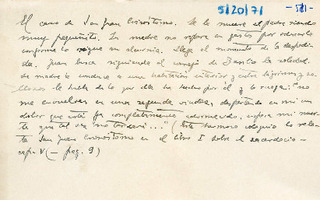 5/20/71 - 581 -
El caso de San Juan Crisóstomo. Se le muere el padre siendo
muy pequeñito. La madre no repara en gastos por educarlo
conforme lo exigue en Llega el momento de la despedi-
da. Juan busca siguiendo el consejo de Basilio la soledad.
La madre lo conduce a una habitación interior y entre lágrimas y so-
llozos le habla de lo que ella ha hecho por él y le ruega: "no
me envuelvas en una segunda viudez, despertando en mi un
dolor que está ya completamente adormecido, espera mi muer-
te que tal vez no tardará..." (Este hermoso coloquio lo rela-
ta San Juan Crisóstomo en el libro I sobre el sacerdocio -
cap. V (- pag. 9)